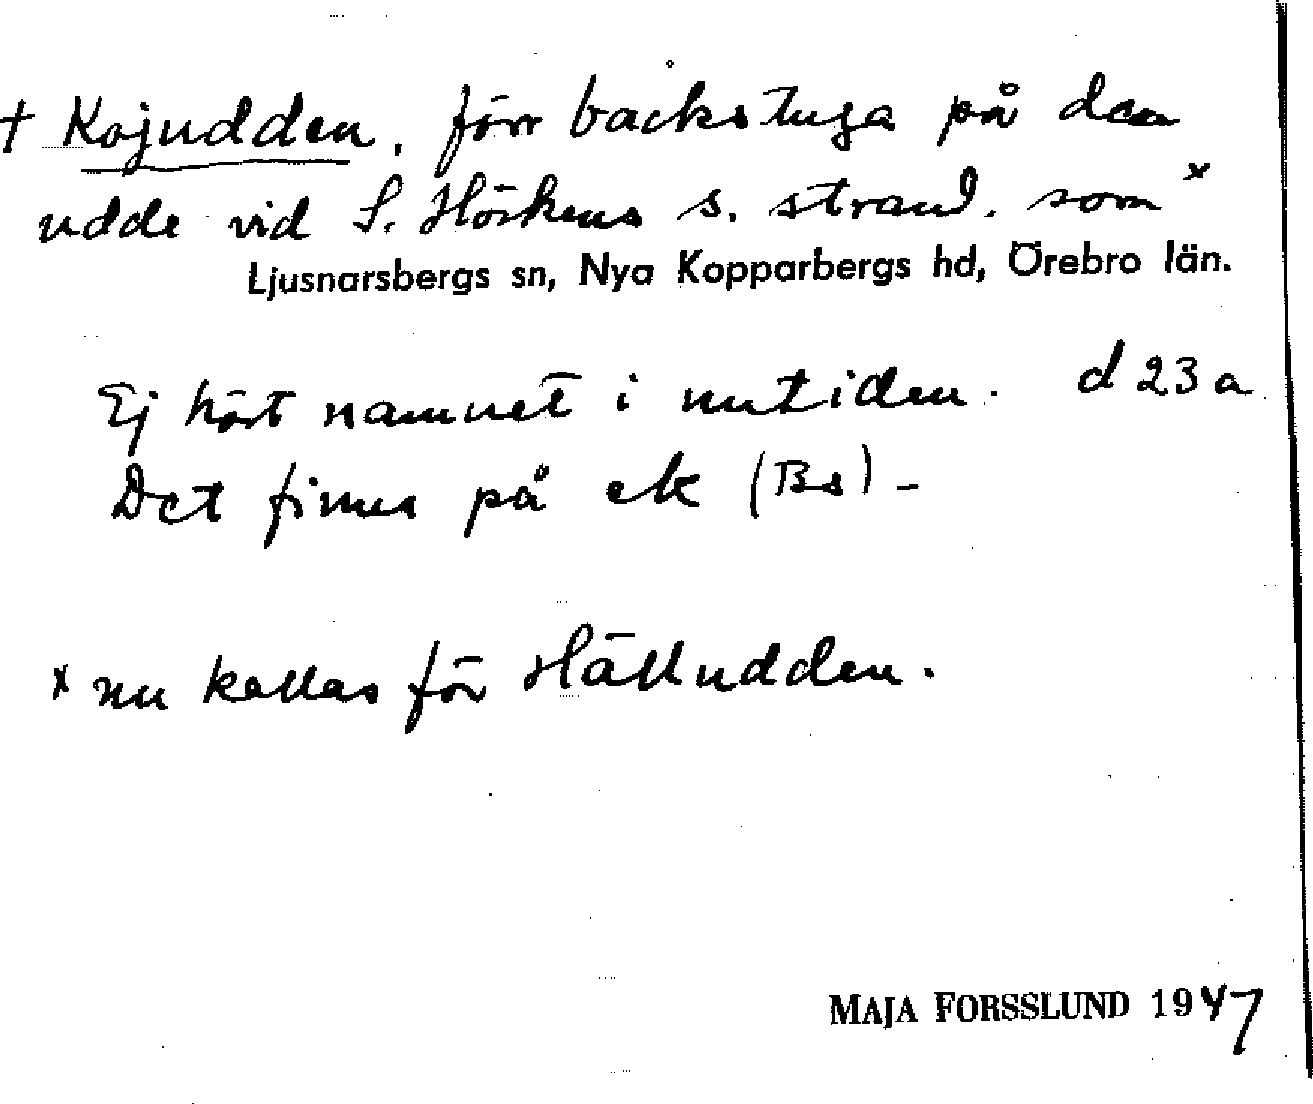 † Kojudden, förr backstuga på den
udde vid S. Hörkens s. strand. som x
Ljusnarsbergs sn, Nya Kopparbergs hd, Örebro län.
Ej hört namnet i nutiden. d 23 a
Det finnes på ek (Bs) -
x nu kallas för Hälludden.
MAJA FORSSLUND 1947